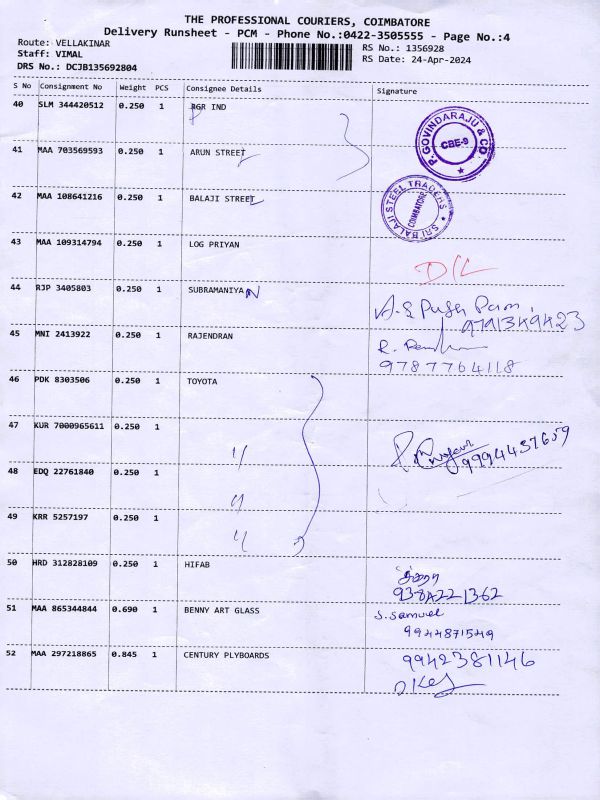 THE PROFESSIONAL COURIERS, COIMBATORE
Delivery Runsheet - PCM - Phone No.:0422-3505555 - Page No.:4
Route: VELLAKINAR RS No.: 1356928
Staff: VIMAL RS Date: 24-Apr-2024
DRS No.: DCJB135692804
S No Consignment No Weight PCS Consignee Details Signature
40 SLM 344420512 0.250 1 RGR IND
P. GOVINDARAJU & CO CBE-9
41 MAA 703569593 0.250 1 ARUN STREET
42 MAA 108641216 0.250 1 BALAJI STREET
SRI BALAJI STEEL TRADERS COIMBATORE
43 MAA 109314794 0.250 1 LOG PRIYAN
D/L
44 RJP 3405803 0.250 1 SUBRAMANIYAN
9791349423
45 MNI 2413922 0.250 1 RAJENDRAN
9787764118
46 PDK 8303506 0.250 1 TOYOTA
47 KUR 7000965611 0.250 1
9994437659
48 EDQ 22761840 0.250 1
49 KRR 5257197 0.250 1
50 HRD 312828109 0.250 1 HIFAB
51 MAA 865344844 0.690 1 BENNY ART GLASS
S. Samuel
9944871549
52 MAA 297218865 0.845 1 CENTURY PLYBOARDS
9942381146